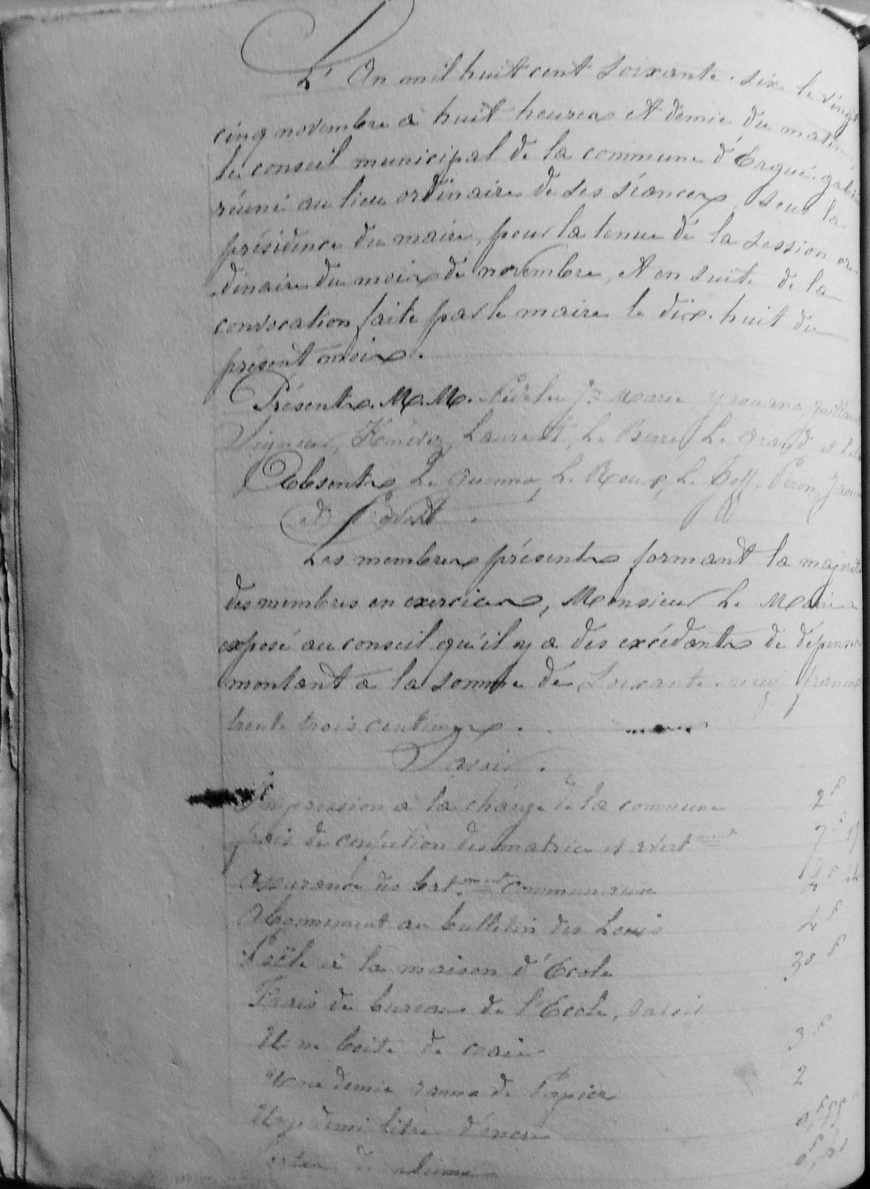 L'An mil huit cent soixante-six le vingt
cinq novembre à huit heures et demie du matin,
le conseil municipal de la commune d'Ergué-gabéric
réuni au lieu ordinaire de ses séances, sous la
présidence du maire, pour la tenue de la session or-
dinaire du mois de novembre, et en suite de la
convocation faite par le maire le dix-huit du
présent mois.
Présents M.M. Jn Marie
Laurent, Le Berre, Le Grand et
Absents Le Guenno, Le Roux, Le Goff, Péron
et
Les membres présents formant la majorité
des membres en exercice, Monsieur Le Maire a
exposé au conseil qu'il y a des excédants de dépenses
montant à la somme de Soixante neuf francs
trente trois centimes.
Savoir.
Impression à la charge de la commune 2f
frais de confection des matrices et avertment 7f
assurance des batments communaux
Abonnement au bulletin des Lois 4f
Poële à la maison d'Ecole 30f
Frais de bureau de l'Ecole, savoir
Une boite de craie 3f
Une demie rame de Papier 2
Un demi litre d'encre